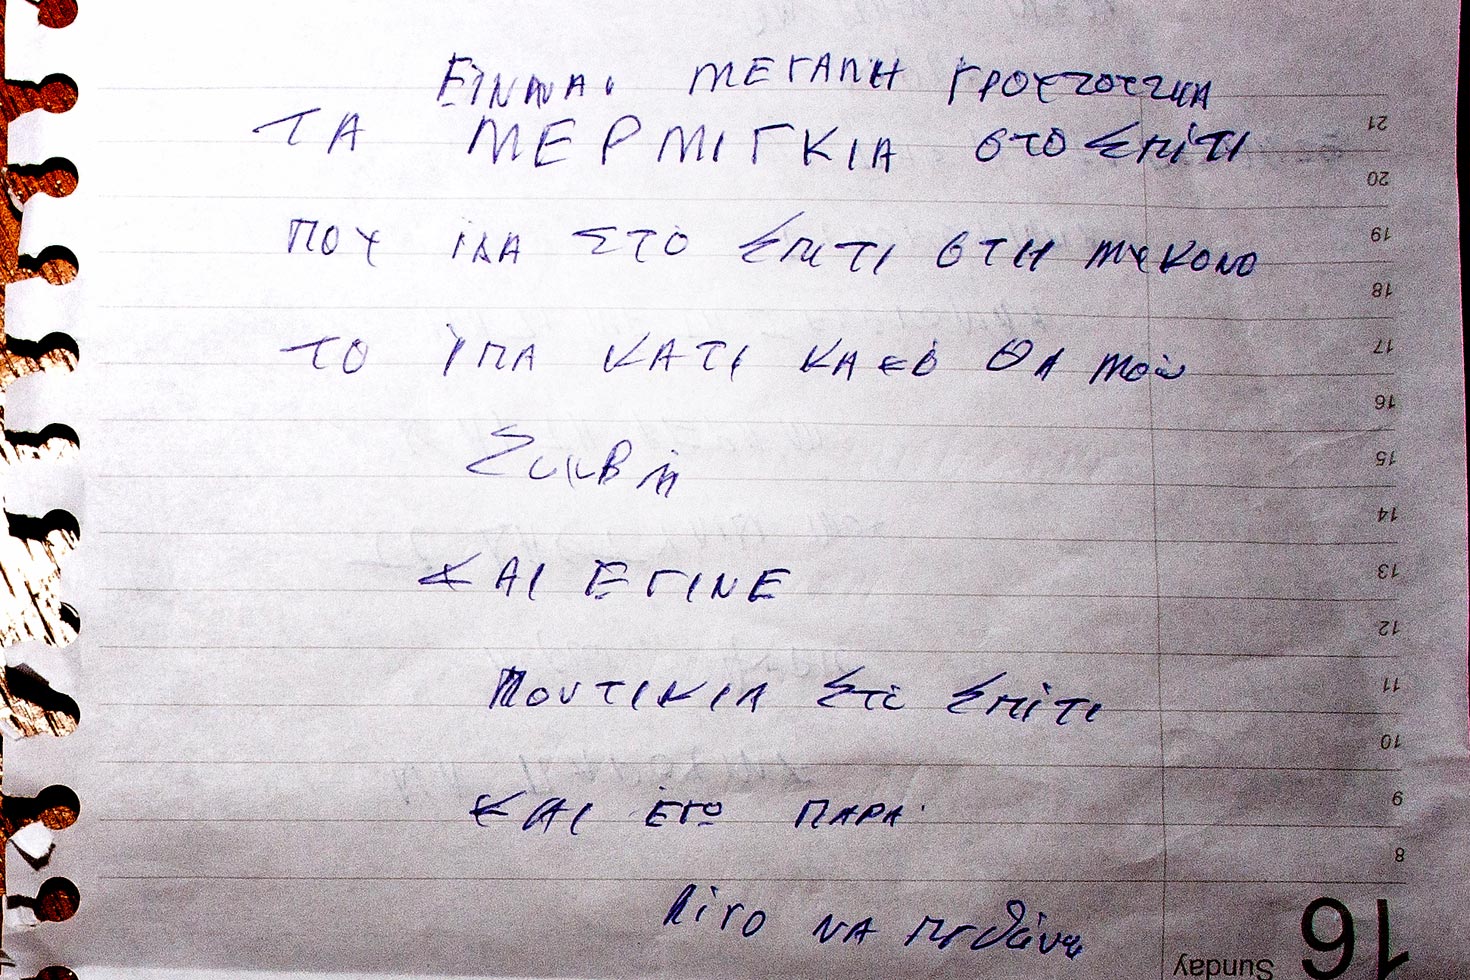 ΕΙΝΑΝΑΙ ΜΕΓΑΛΗ ΓΡΟΥΣΟΥΖΙΑ
ΤΑ ΜΕΡΜΙΓΚΙΑ ΣΤΟ ΣΠΙΤΙ
ΠΟΥ ΙΔΑ ΣΤΟ ΣΠΙΤΙ ΣΤΗ ΜΥΚΟΝΟ
ΤΟ ΙΠΑ ΚΑΤΙ ΚΑΚΟ ΘΑ ΜΟΥ
ΣΥΜΒΗ
ΚΑΙ ΕΓΙΝΕ
ΠΟΥΤΙΚΙΑ ΣΤΟ ΣΠΙΤΙ
ΚΑΙ ΕΓΩ ΠΑΡΑ
ΛΙΓΟ ΝΑ
21
20
19
18
17
16
15
14
13
12
11
10
9
8
16
Sunday